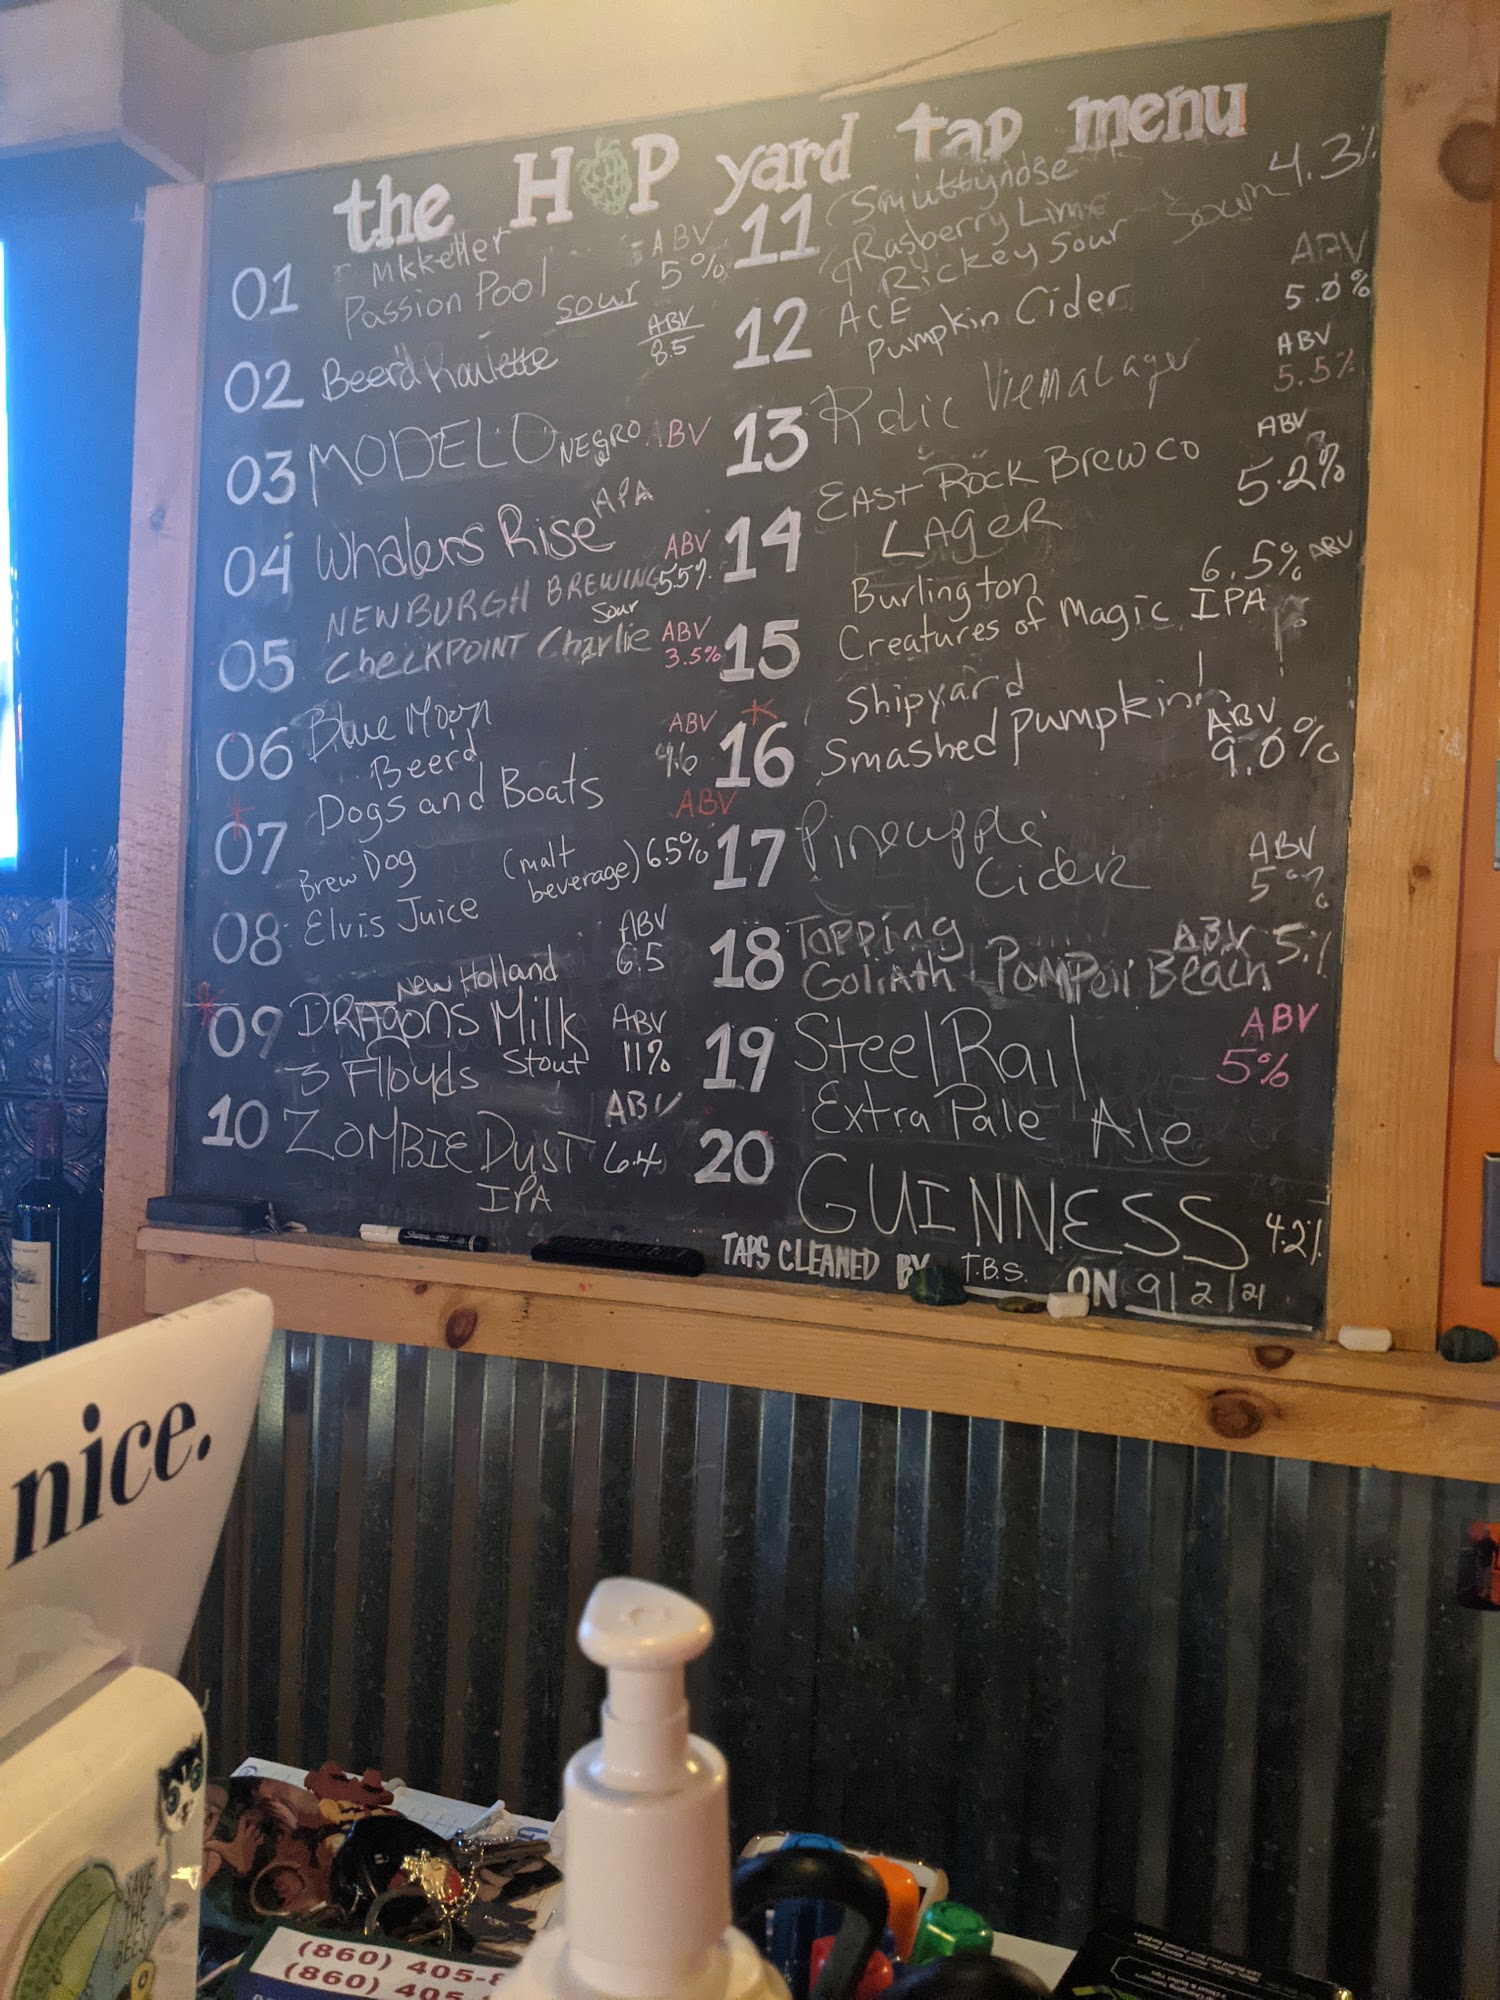 the HOP yard tap menu
01 Mkkeller
Passion Pool sour ABV 5%
02 Beer'd Roulette ABV 8.5
03 MODELO NEGRO ABV
04 Whalers Rise APA ABV 5.5%
NEWBURGH BREWING
05 CheckPOINT Charlie Sour ABV 3.5%
06 Blue Moon ABV
Beer'd
07 Dogs and Boats ABV 6.5%
(malt beverage)
Brew Dog
08 Elvis Juice ABV 6.5
New Holland
09 DRAgons Milk Stout ABV 11%
3 Flloyds
10 ZOMBIE DUST IPA ABV 6.4
11 Smuttynose
Rasberry Lime
Rickey Sour 4.3%
12 ACE
Pumpkin Cider ABV 5.0%
13 Relic Viennalager ABV 5.5%
14 EAst Rock Brew co
LAgeR ABV 5.2%
15 Burlington
Creatures of Magic IPA 6.5% ABV
Shipyard
16 Smashed Pumpkin ABV 9.0%
17 Pineapple
Cider ABV 5%
18 Topping
Goliath Pompeii Beach ABV 5%
19 Steel Rail
Extra Pale Ale ABV 5%
20 GUINNESS 4.2%
TAPS CLEANED BY T.B.S. ON 9/2/21
nice.
SAVE
THE
BEES
(860) 405-
(860) 405